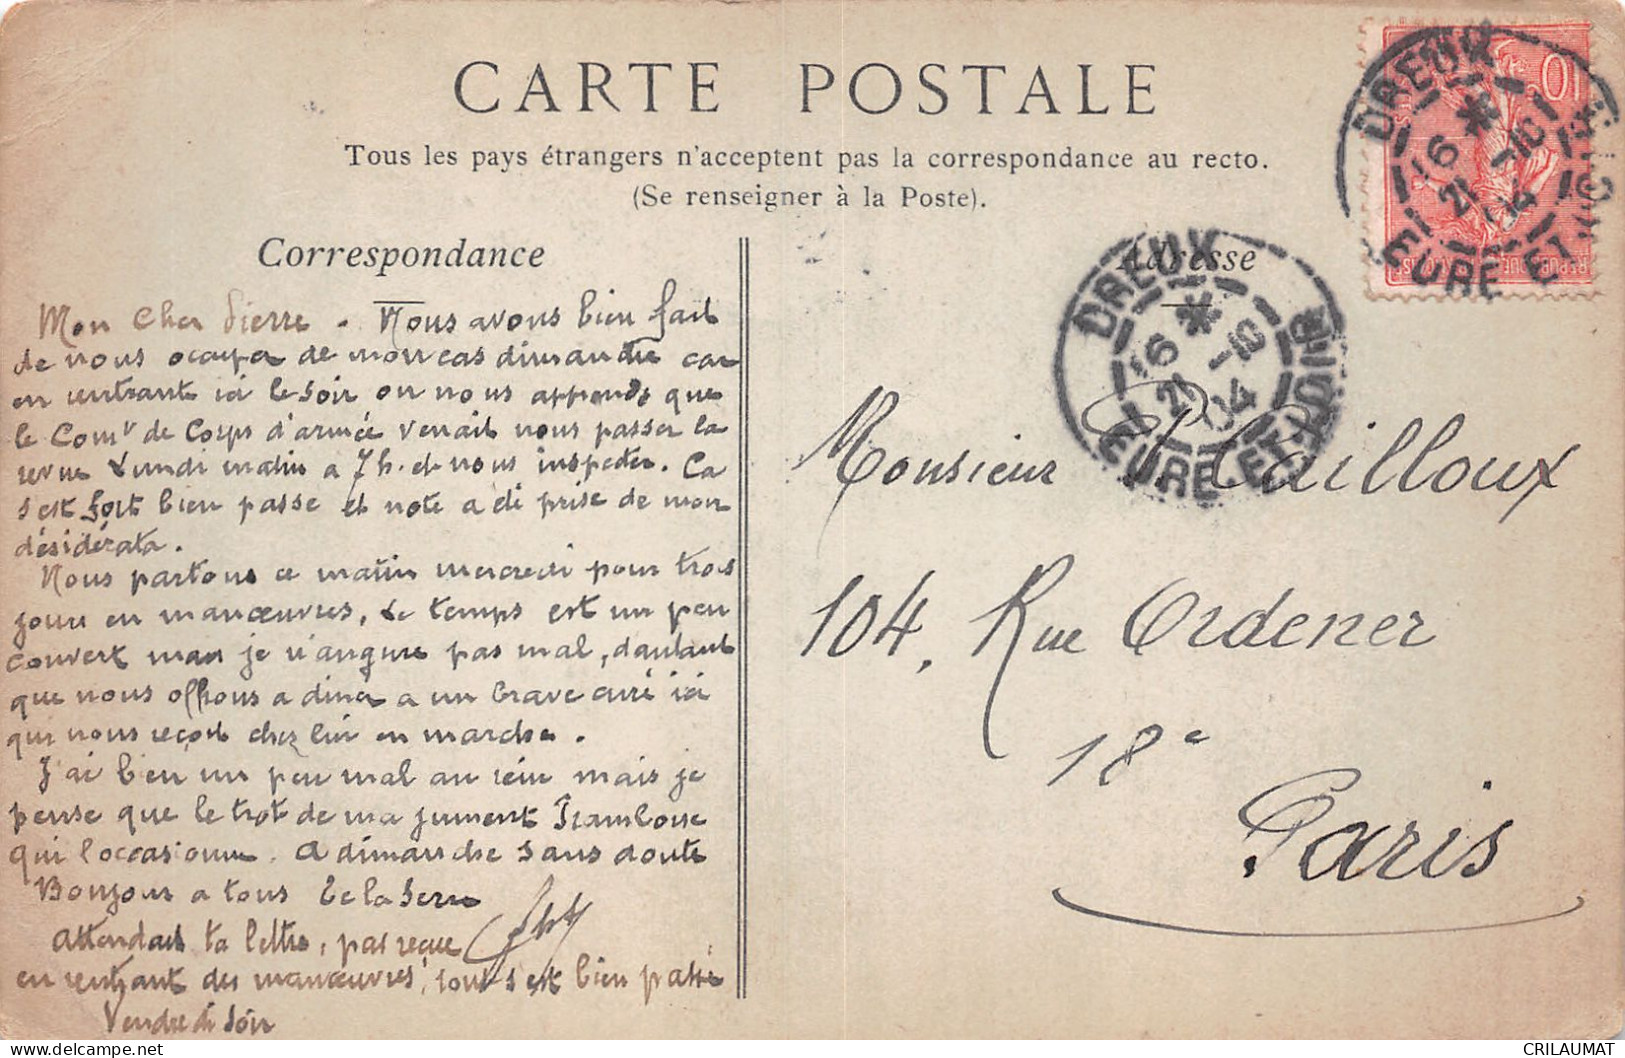 CARTE POSTALE
Tous les pays étrangers n'acceptent pas la correspondance au recto.
(Se renseigner à la Poste).
Correspondance
Adresse
Mon Cher Pierre. Nous avons bien fait
de nous ocuper de mon cas dimanche car
en rentrant ici le soir on nous apprends que
le Comr de Corps d'armée venait nous passer la
revue Lundi matin a 7h. et nous inspecter. Ca
s'est fort bien passe et note a été prise de mon
désidérata.
Nous partons ce matin mercredi pour trois
jours en manœuvres, Le temps est un peu
couvert mais je n'augure pas mal, dautant
que nous offrons a diner a un brave curé ici
qui nous reçoit chez lui en marche.
J'ai bien un peu mal au rein mais je
pense que le trot de ma jument
qui l'occasionne. A dimanche sans doute
Bonjour a tous
Attendais ta lettre, pas reçue
en rentrant des manœuvres, tout s'est bien passé
Vendredi soir
Monsieur P. Cailloux
104, Rue Ordener
18e
Paris
DREUX
16
21 -10
04
EURE-ET-LOIR
DREUX
16
21 -10
04
EURE ET LOIR
10
CRILAUMAT